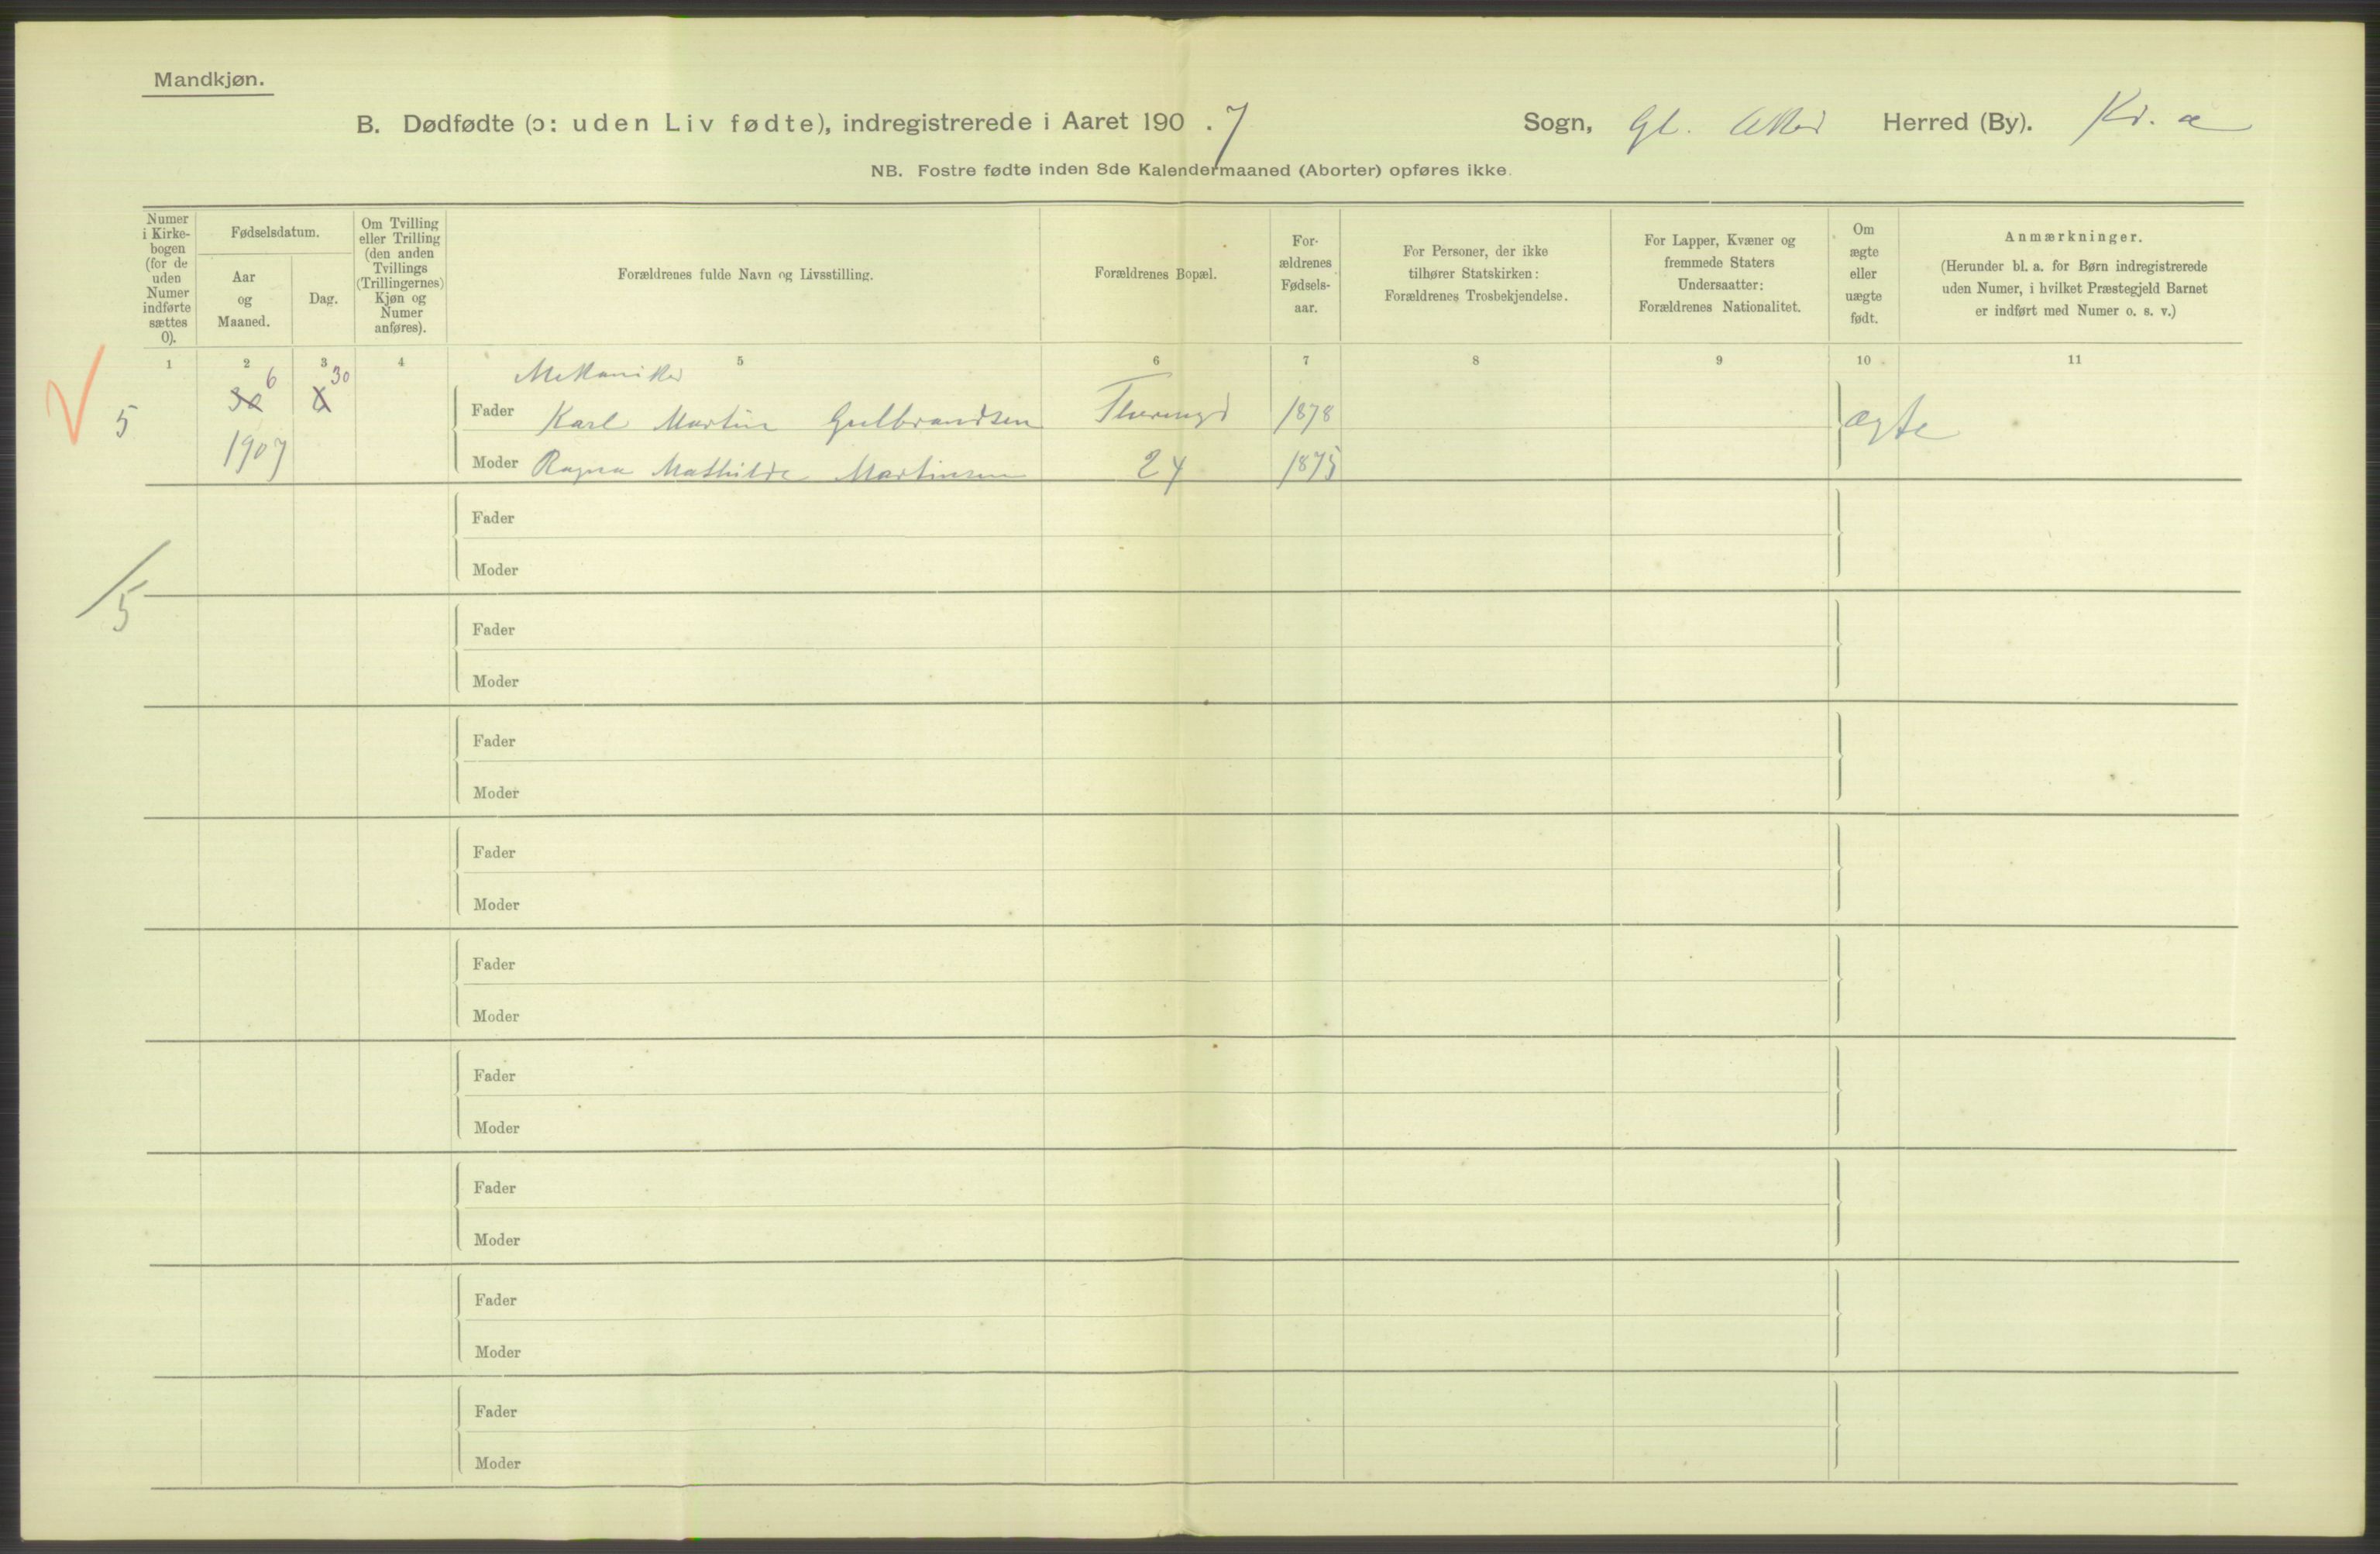 Mandkjøn.
B. Dødfødte (ɔ: uden Liv fødte), indregistrerede i Aaret 190.7 Sogn, Gl. Aker Herred (By). Kr. a
NB. Fostre fødte inden 8de Kalendermaaned (Aborter) opføres ikke.
Numer
i Kirke-
bogen
(for de
uden
Numer
indførte
sættes
0).
Fødselsdatum.
Aar
og
Maaned.
Dag.
Om Tvilling
eller Trilling
(den anden
Tvillings
(Trillingernes)
Kjøn og
Numer
anføres).
Forældrenes fulde Navn og Livsstilling.
Forældrenes Bopæl.
For-
ældrenes
Fødsels-
aar.
For Personer, der ikke
tilhører Statskirken:
Forældrenes Trosbekjendelse.
For Lapper, Kvæner og
fremmede Staters
Undersaatter:
Forældrenes Nationalitet.
Om
ægte
eller
uægte
født.
Anmærkninger.
(Herunder bl. a. for Børn indregistrerede
uden Numer, i hvilket Præstegjeld Barnet
er indført med Numer o. s. v.)
1 2 3 4 5 6 7 8 9 10 11
6 30 Mekaniker
5 Fader Karl Martin Gulbrandsen 1878 ægte
1907 Moder Ragna Mathilde Martinsen 24 1875
Fader
Moder
5
Fader
Moder
Fader
Moder
Fader
Moder
Fader
Moder
Fader
Moder
Fader
Moder
Fader
Moder
Fader
Moder